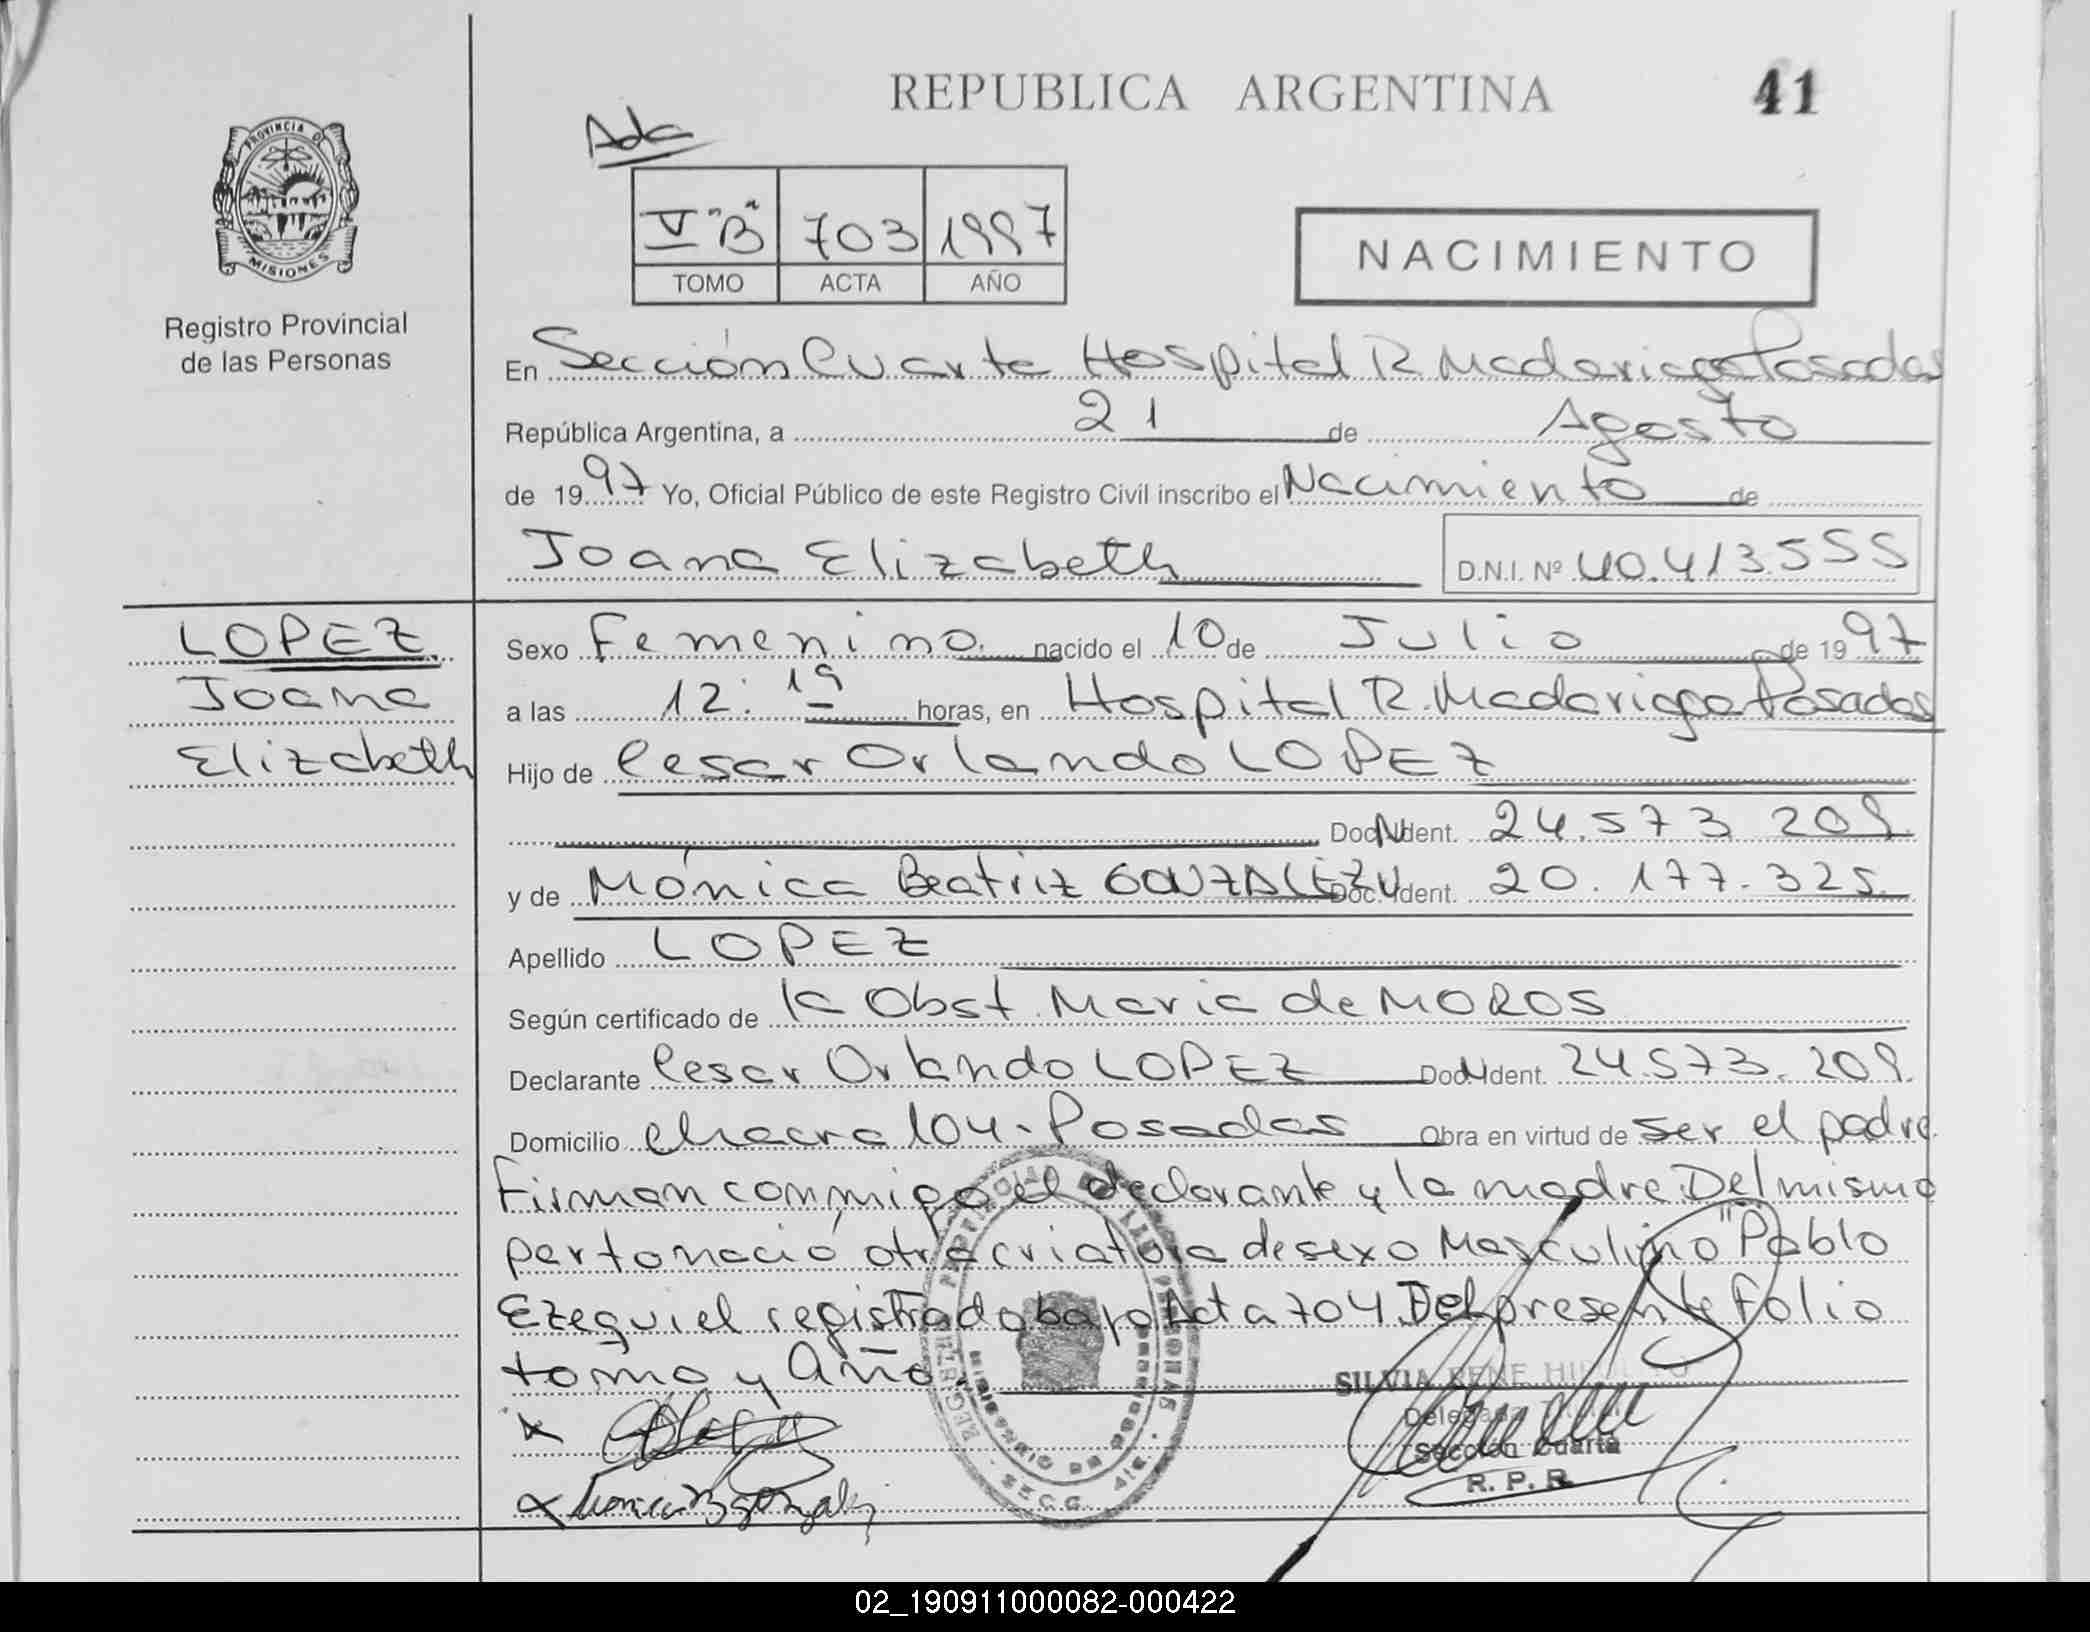 REPUBLICA ARGENTINA
41
Ada
PROVINCIA DE
MISIONES
Registro Provincial
de las Personas
V "B" 703 1997
TOMO ACTA AÑO
NACIMIENTO
En Sección Cuarta Hospital R. Madariaga Posadas
República Argentina, a 21 de Agosto
de 1997 Yo, Oficial Público de este Registro Civil inscribo el Nacimiento de
Joana Elizabeth D.N.I. Nº 40.413.555
LOPEZ
Joana
Elizabeth
Sexo Femenino nacido el 10 de Julio de 1997
a las 12:19 horas, en Hospital R. Madariaga Posadas
Hijo de Cesar Orlando LOPEZ
Doc. Ident. 24.573.209
y de Mónica Beatriz GONZALEZ Doc. Ident. 20.177.325
Apellido LOPEZ
Según certificado de la Obst. Maria de MOROS
Declarante Cesar Orlando LOPEZ Doc. Ident. 24.573.209
Domicilio Chacra 104 - Posadas Obra en virtud de ser el padre
Firman conmigo el declarante y la madre Del mismo
parto nació otra criatura de sexo Masculino "Pablo
Ezequiel registrado bajo Acta 704 Del presente folio
tomo y Año.
SILVIA RENE
Delegada
Sección Cuarta
R. P. R.
02_190911000082-000422